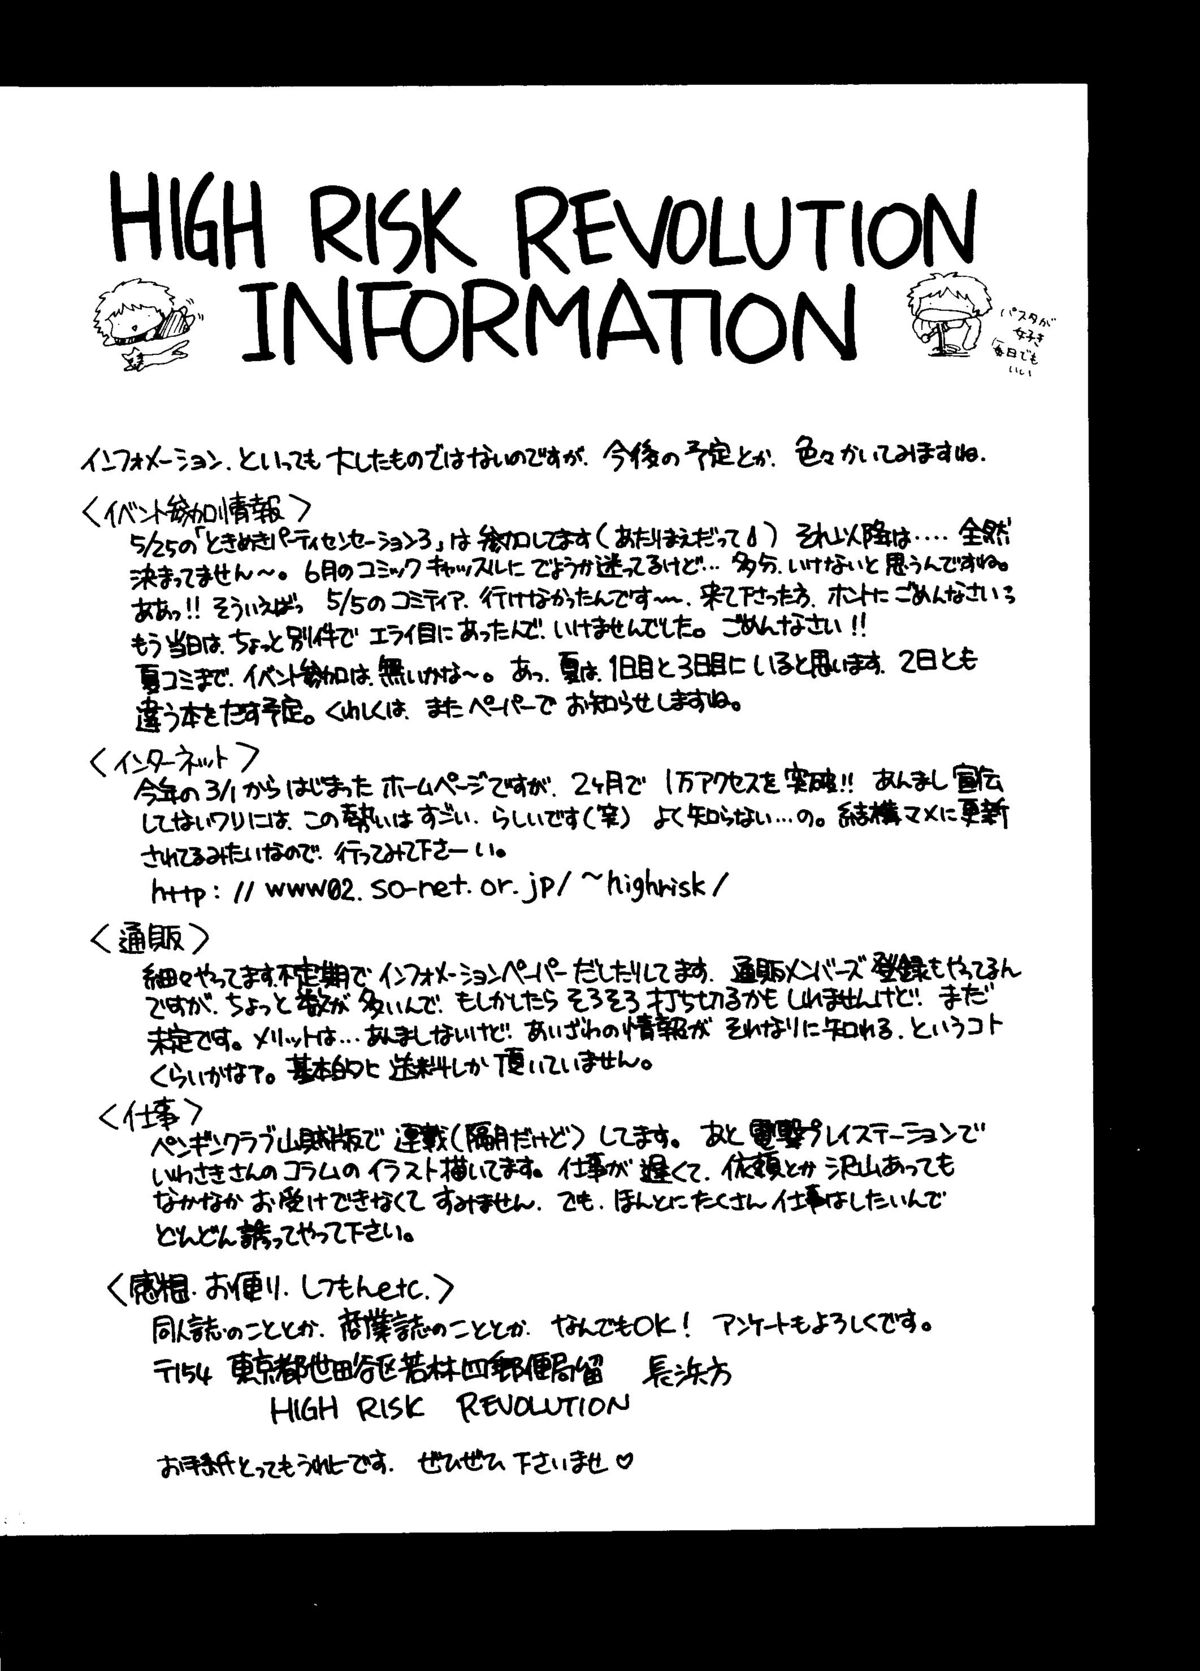 HIGH RISK REVOLUTION
INFORMATION
パスタが
好き
毎日でも
いい
インフォメーション、といっても大したものではないのですが、今後の予定とか、色々かいてみますね、
〈イベント参加情報〉
5/25の「ときめきパーティセンセーション3」は参加してます(あたりまえだって) それ以降は…‥全然
決まってません〜。6月のコミックキャッスルにでようか迷ってるけど…多分、いけないと思うんですね。
ああっ!!そういえばっ 5/5のコミティア、行けなかったんです〜、来て下さった方、ホントにごめんなさい
もう当日は、ちょっと別件で エライ目にあったんで、いけませんでした。ごめんなさい!!
夏コミまで、イベント参加は、無いかな〜。あっ、夏は、1日目と3日目にいると思います、2日とも
違う本をだす予定。くわしくは、またペーパーで お知らせしますね。
〈インターネット〉
今年の3/1からはじまったホームページですが、2ヶ月で 1万アクセスを突破!! あんまし宣伝
してないワリには、この勢いはすごい、らしいです(笑) よく知らない…の。結構マメに更新
されてるみたいなので、行ってみて下さーい。
http://www02.so-net.or.jp/~highrisk/
〈通販〉
細々やってます、不定期でインフォメーションペーパーだしたりしてます、通販メンバーズ登録もやってるん
ですが、ちょっと数が多いんで、もしかしたらそろそろ打ち切るかもしれませんけど、まだ
未定です。メリットは…あんましないけど、あいざわの情報がそれなりに知れる、というコト
くらいかなァ。基本的に送料しか頂いていません。
〈仕事〉
ペンギンクラブ山賊版で連載(隔月だけど)してます。あと電撃プレイステーションで
いわさきさんのコラムのイラスト描いてます。仕事が遅くて、依頼とか沢山あっても
なかなかお受けできなくてすみません、でも、ほんとにたくさん仕事はしたいんで
どんどん誘ってやって下さい。
〈感想、お便り、しつもんetc.〉
同人誌のこととか、商業誌のこととか、なんでもOK! アンケートもよろしくです。
〒154 東京都世田谷区若林四郵便局留 長浜方
HIGH RISK REVOLUTION
お手紙とってもうれしーです、ぜひぜひ下さいませ♡